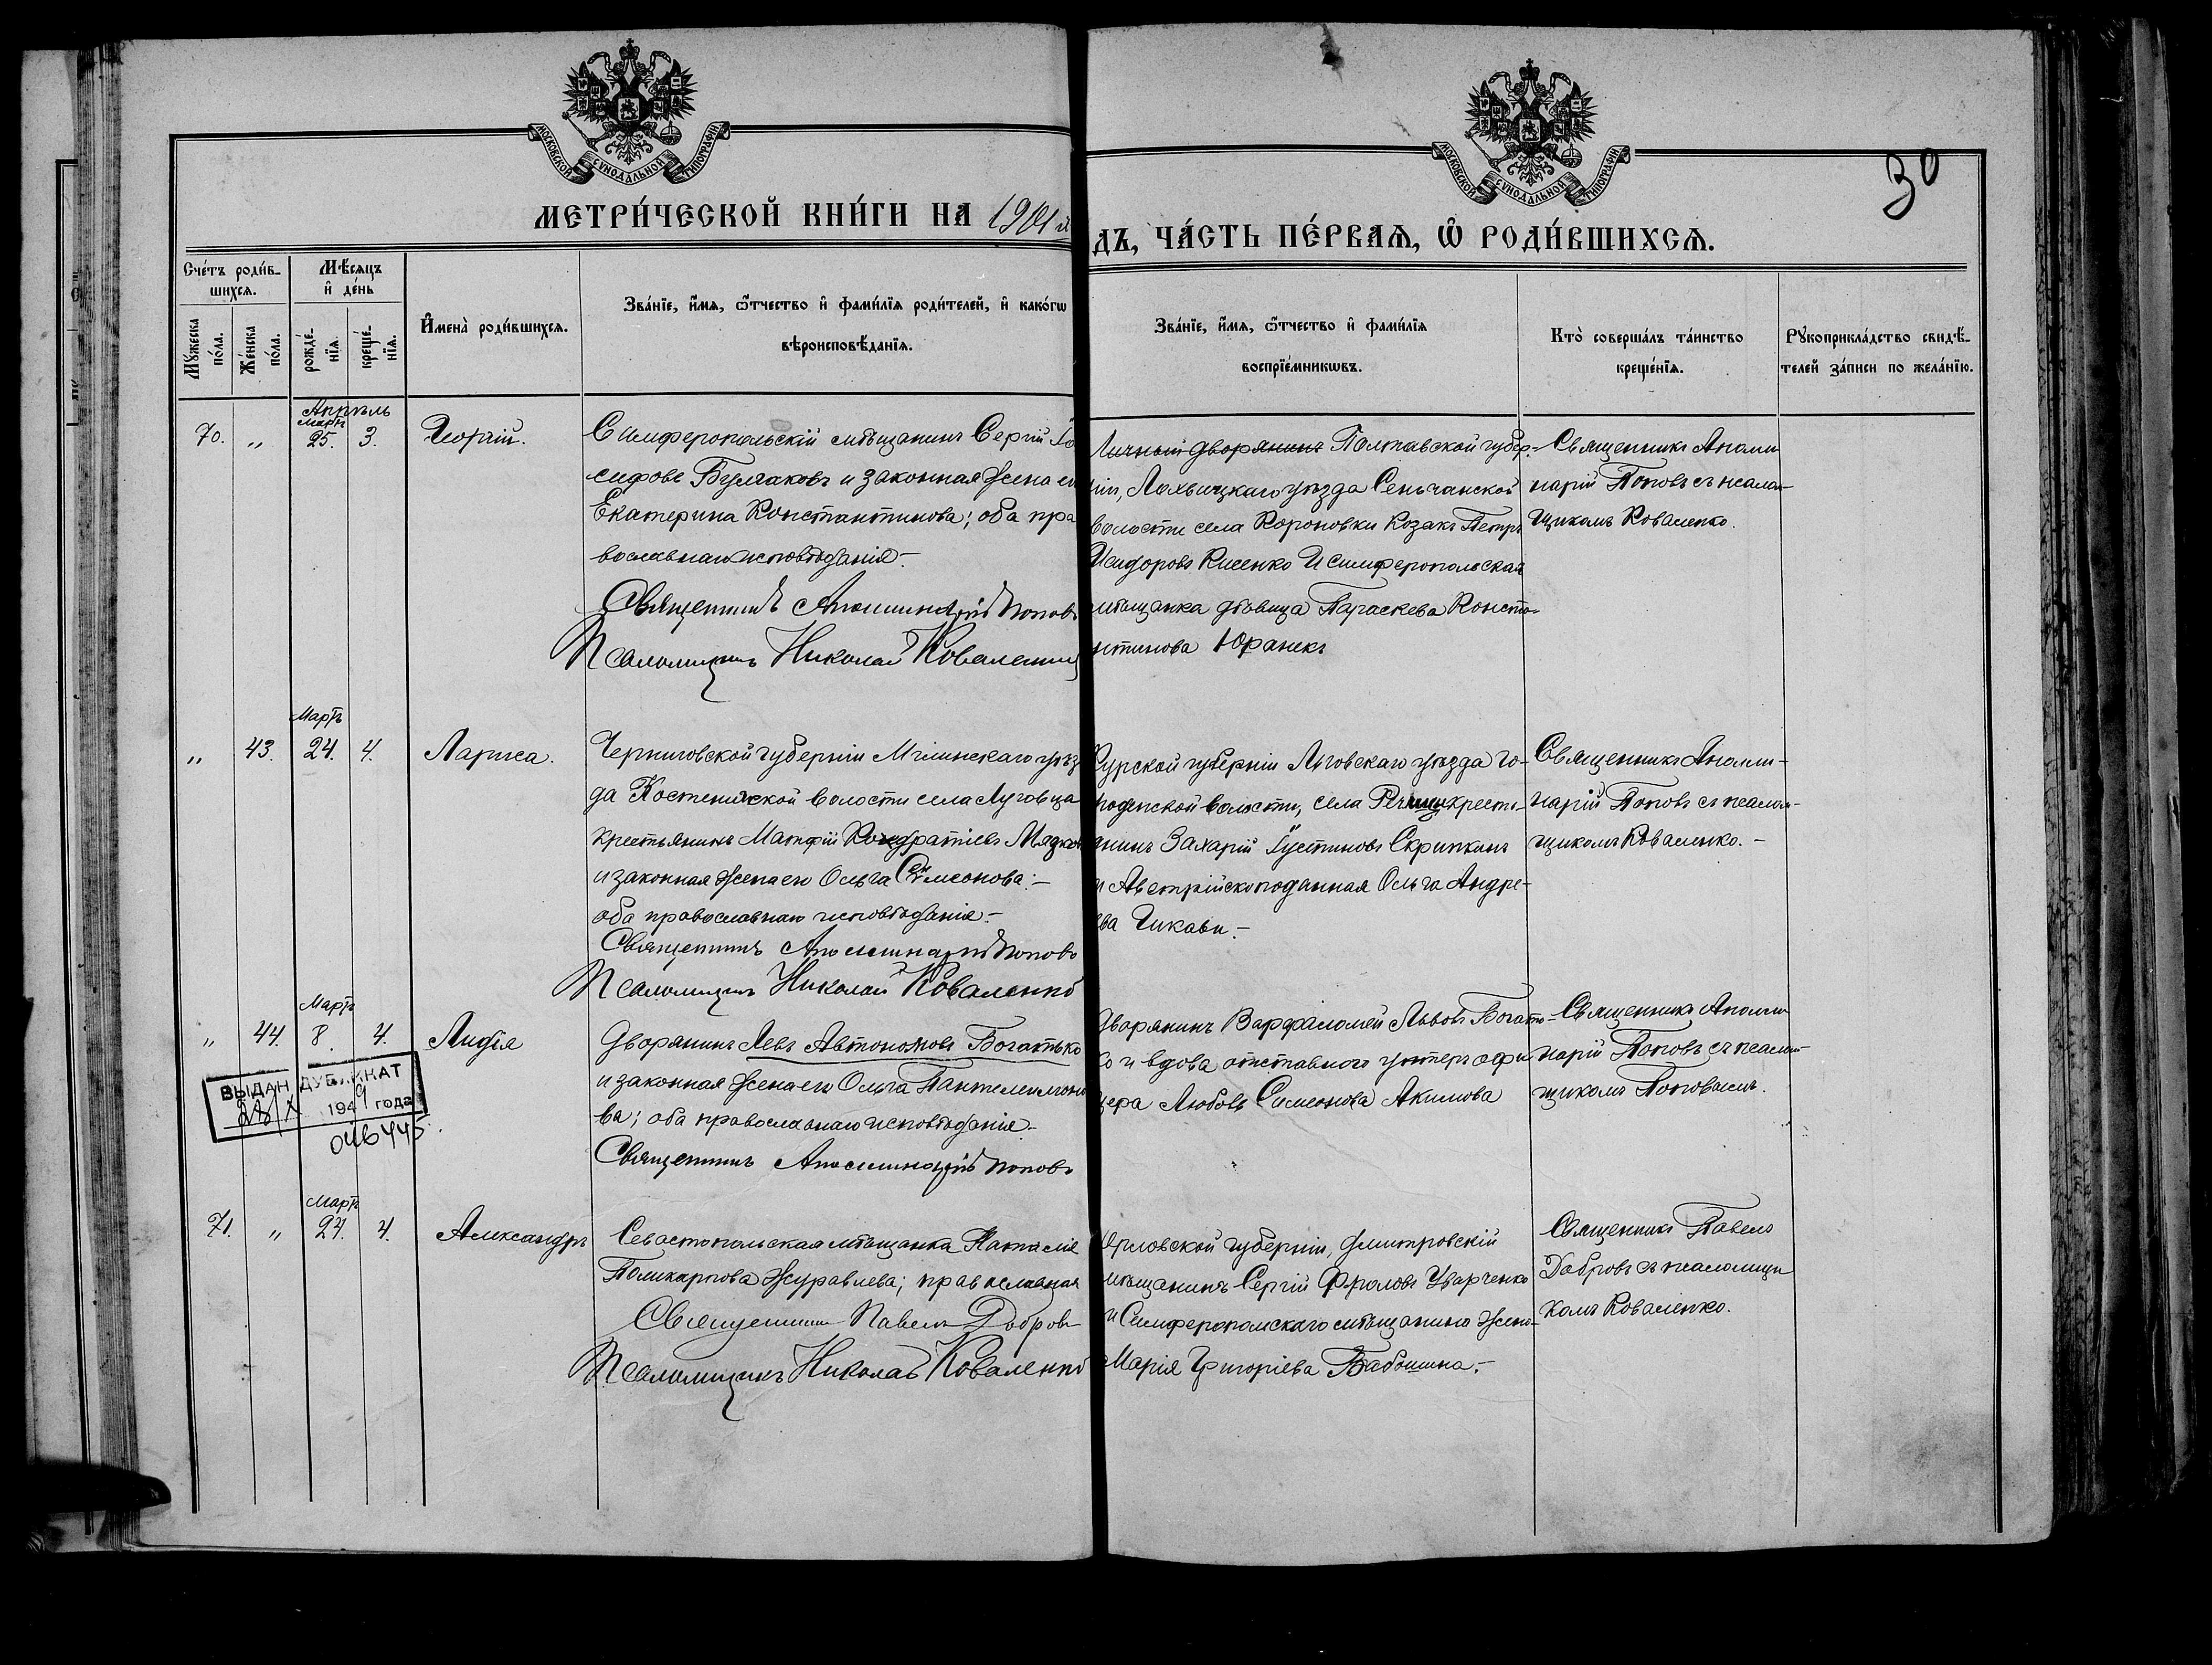 МОСКОВСКОЙ СѴНОДАЛЬНОЙ ТИПОГРАФІИ
МОСКОВСКОЙ СѴНОДАЛЬНОЙ ТИПОГРАФІИ
30
МЕТРИ́ЧЕСКОЙ КНИ́ГИ НА 1901 й
ДЪ, ЧА́СТЬ ПЕ́РВАѦ, Ѡ҆ РОДИ́ВШИХСѦ.
Сче́тъ роди́в-
шихсѧ.
Мꙋ́жеска
по́ла.
Же́нска
по́ла.
Мѣ́сѧцъ
и҆ де́нь
рожде́-
нїѧ.
креще́-
нїѧ.
И҆мена̀ роди́вшихсѧ.
Зва́нїе, и҆́мѧ, ѻ҆́тчество и҆ фами́лїѧ роди́телей, и҆ како́гѡ
вѣроисповѣ́данїѧ.
Зва́нїе, и҆́мѧ, ѻ҆́тчество и҆ фами́лїѧ
воспрїе́мникѡвъ.
Кто̀ соверша́лъ та́инство
креще́нїѧ.
Рꙋкоприкла́дство свидѣ́-
телей за́писи по жела́нїю.
Апрѣль
Мартъ
70. „ 25. 3. Георгій.
Симферопольскій мѣщанинъ Сергій Іо
сифовъ Булгаковъ и законная жена ег
Екатерина Константинова; оба пра
вославнаго исповѣданія.-
Священникъ Аполлинарій Поповъ
Псаломщикъ Николай Коваленко
Личный дворянинъ Полтавской губер-
ніи, Лохвицкаго уѣзда Сенчанской
волости села Короновки Козакъ Петръ
Исидоровъ Кисенко и симферопольская
мѣщанка дѣвица Параскева Конста-
нтинова Юранекъ
Священникъ Аполли
нарій Поповъ съ псалом-
щикомъ Коваленко.
Мартъ
„ 43. 24. 4. Лариса.
Черниговской губерніи Мглинскаго уѣз
да Костеничской волости села Луговца
крестьянинъ Матфій Кондратіевъ
и законная жена его Ольга Симеонова:-
оба православнаго исповѣданія.-
Священникъ Аполлинарій Поповъ
Псаломщикъ Николай Коваленко
Курской губерніи Льговскаго уѣзда Го-
роденской волости, села Речицы кресть-
янинъ Захарій Іустиновъ Скрипкинъ
и Австрійскоподанная Ольга Андре-
ева Чикави.-
Священникъ Аполли-
нарій Поповъ съ псалом-
щикомъ Коваленко.-
Мартъ
„ 44. 8. 4. Лидія
ВЫДАН ДУБЛИКАТ
28/X 1949 года
Дворянинъ Левъ Автономовъ Богатько
и законная жена его Ольга Пантелеимоно
ва; оба православнаго исповѣданія.-
Священникъ Аполлинарій Поповъ
Дворянинъ Варфаломей Львовъ Богать-
ко и вдова отставного унтеръ офи
цера Любовь Симеонова Акимова
Священникъ Аполли
нарій Поповъ съ псалом-
щикомъ
Мартъ
71. „ 24. 4. Александръ
Севастопольская мѣщанка Наталія
Поликарпова Журавлева; православная
Священникъ Павелъ Добровъ
Псаломщикъ Николай Коваленко
Орловской губерніи, Дмитровскій
мѣщанинъ Сергій Фроловъ Уварченко
и Симферопольскаго мѣщанина жена-
Марія Григоріева Бабошина.-
Священникъ Павелъ
Добровъ съ псаломщи
комъ Коваленко.